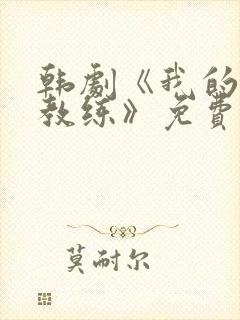 韩剧《我的
教练》免费
莫耐尔